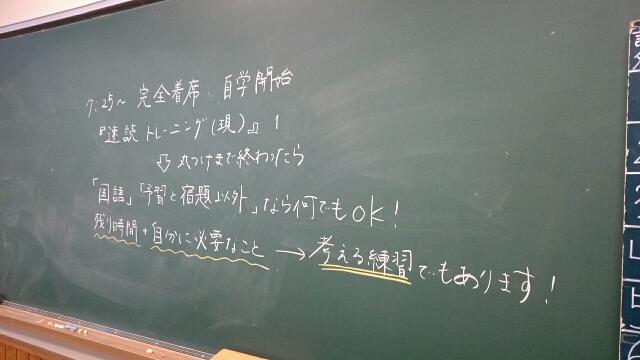 7:25~ 完全着席、自学開始
『速読トレーニング(現)』1
⇩ 丸つけまで終わったら
「国語」「予習と宿題以外」なら何でもOK!
残り時間+自分に必要なこと → 考える練習でもあります!